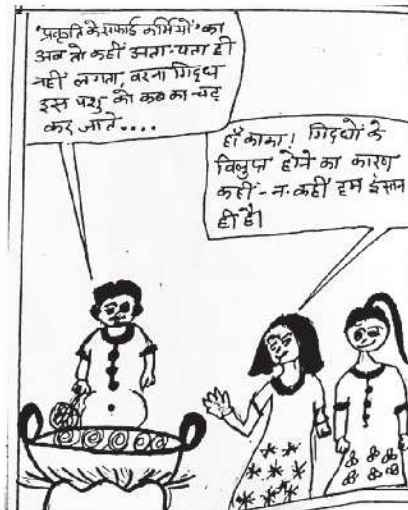 'प्रकृति के सफाई कर्मियों' का
अब तो कहीं अता-पता ही
नहीं लगता, वरना गिद्ध
इस पशु को कब का चट
कर जाते....
हाँ काका! गिद्धों के
विलुप्त होने का कारण
कहीं-न-कहीं हम इंसान
ही हैं।